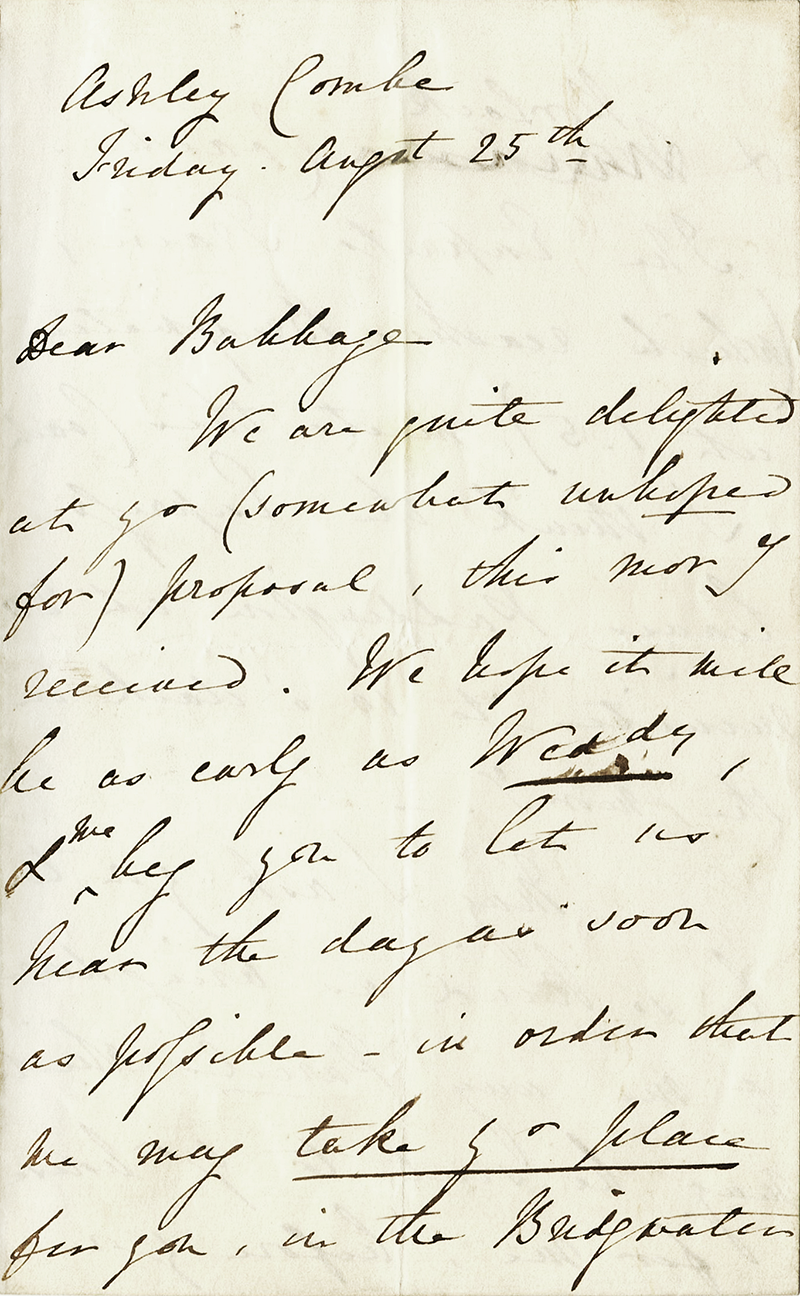 Ashley Combe
Friday. Augst 25th
Dear Babbage
We are quite delighted
at yr (somewhat unhoped
for) proposal, this morg
received. We hope it will
be as early as Wedd'y,
& we beg you to let us
hear the day as soon
as possible - in order that
we may take yr place
for you, in the Bridgwater